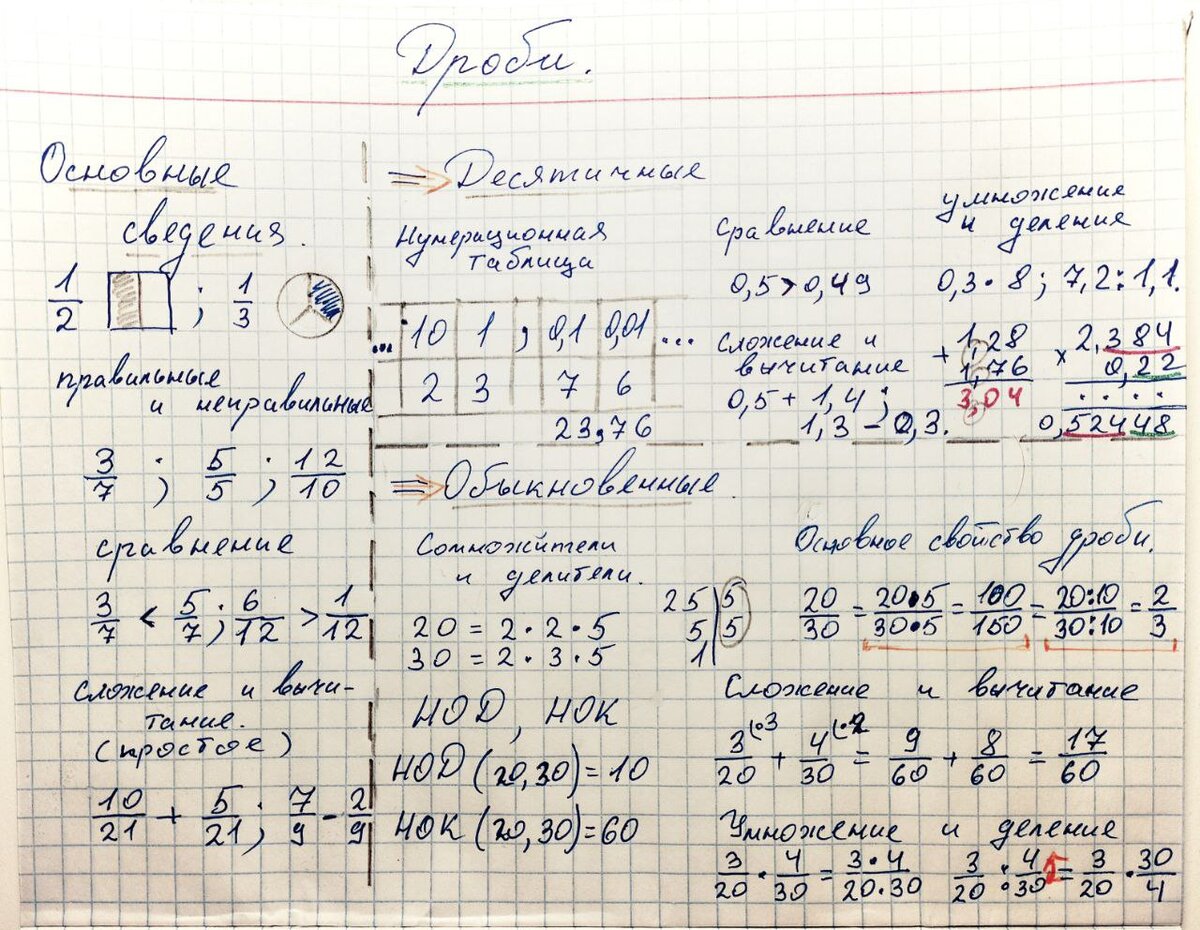 Дроби.
Основные
сведения.
1/2 ; 1/3
правильные
и неправильные
3/7 ; 5/5 ; 12/10
сравнение
3/7 < 5/7 ; 6/12 > 1/12
сложение и вычи-
тание.
(простое)
10/21 + 5/21 ; 7/9 - 2/9
⇒ Десятичные
Нумерационная
таблица
... 10 1 , 0,1 0,01 ...
2 3 7 6
23,76
Сравнение
0,5 > 0,49
сложение и
вычитание
0,5 + 1,4 ;
1,3 - 0,3.
умножение
и деление
0,3 · 8 ; 7,2 : 1,1.
+ 1,28
1,76
3,04
× 2,384
0,22
. . . .
0,52448
⇒ Обыкновенные.
Сомножители
и делители.
20 = 2 · 2 · 5
30 = 2 · 3 · 5
25 | 5
5 | 5
1 |
НОД, НОК
НОД (20,30) = 10
НОК (20,30) = 60
Основное свойство дроби.
20/30 = 20·5/30·5 = 100/150 = 20:10/30:10 = 2/3
Сложение и вычитание
3/20 (·3 + 4/30 (·2 = 9/60 + 8/60 = 17/60
Умножение и деление
3/20 · 4/30 = 3·4/20·30
3/20 : 4/30 = 3/20 · 30/4